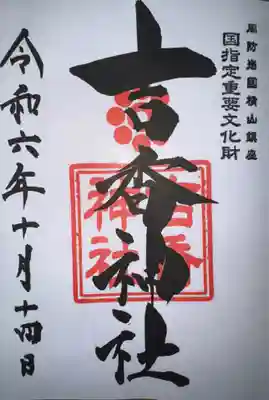 周防岩国横山鎮座
国指定重要文化財
吉香神社
吉香神社
令和六年十月十四日